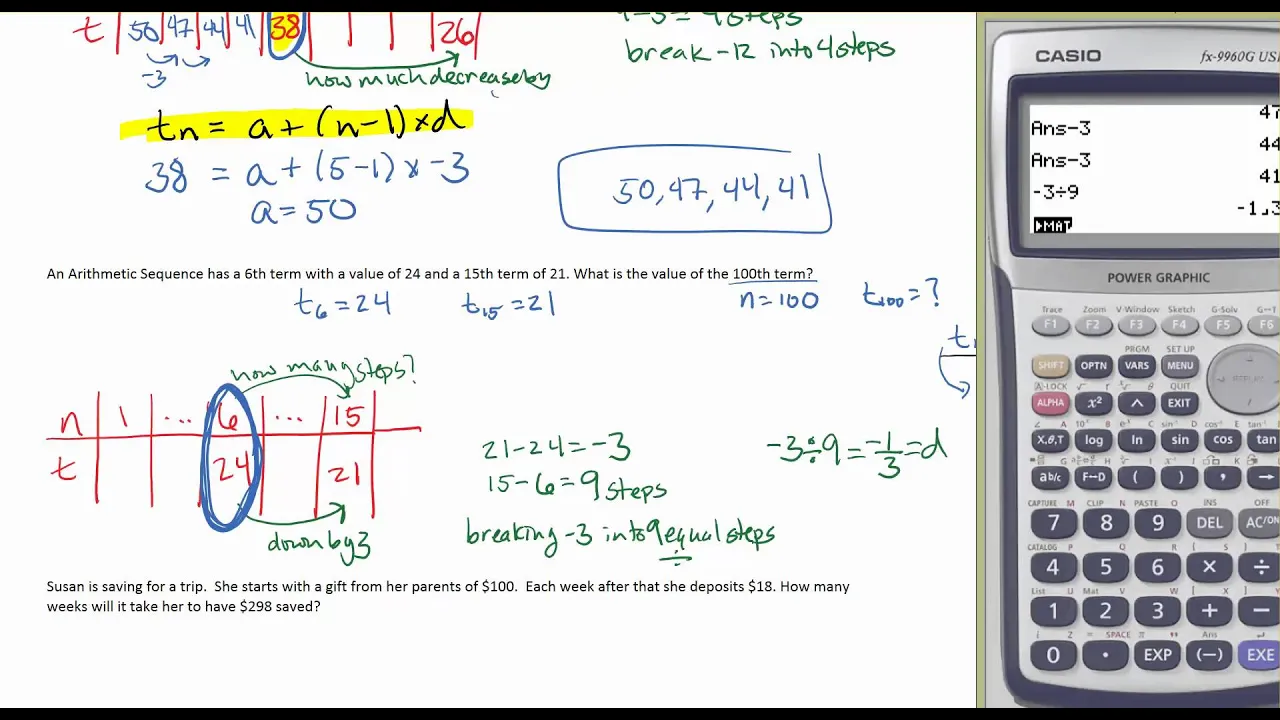 t 50 47 44 41 38 26
-3
how much decrease by
break -12 into 4 steps
tn = a + (n-1) × d
38 = a + (5-1) × -3
a = 50
50, 47, 44, 41
An Arithmetic Sequence has a 6th term with a value of 24 and a 15th term of 21. What is the value of the 100th term?
t6 = 24 t15 = 21 n = 100 t100 = ?
how many steps?
n 1 ... 6 ... 15
t 24 21
down by 3
21 - 24 = -3
15 - 6 = 9 steps
breaking -3 into 9 equal steps
÷
-3 ÷ 9 = -1/3 = d
Susan is saving for a trip. She starts with a gift from her parents of $100. Each week after that she deposits $18. How many
weeks will it take her to have $298 saved?
CASIO fx-9960G USI
47
Ans-3
44
Ans-3
41
-3÷9
-1⌟3
▶MAT
POWER GRAPHIC
Trace Zoom V-Window Sketch G-Solv G↔T
F1 F2 F3 F4 F5 F6
PRGM SET UP
SHIFT OPTN VARS MENU
A-LOCK QUIT
ALPHA x² ^ EXIT
REPLAY
X,θ,T log ln sin cos tan
a b/c F↔D ( ) , →
CAPTURE CLIP PASTE INS OFF
7 8 9 DEL AC/ON
CATALOG
4 5 6 × ÷
List Mat
1 2 3 + −
i = SPACE π " Ans
0 . EXP (−) EXE